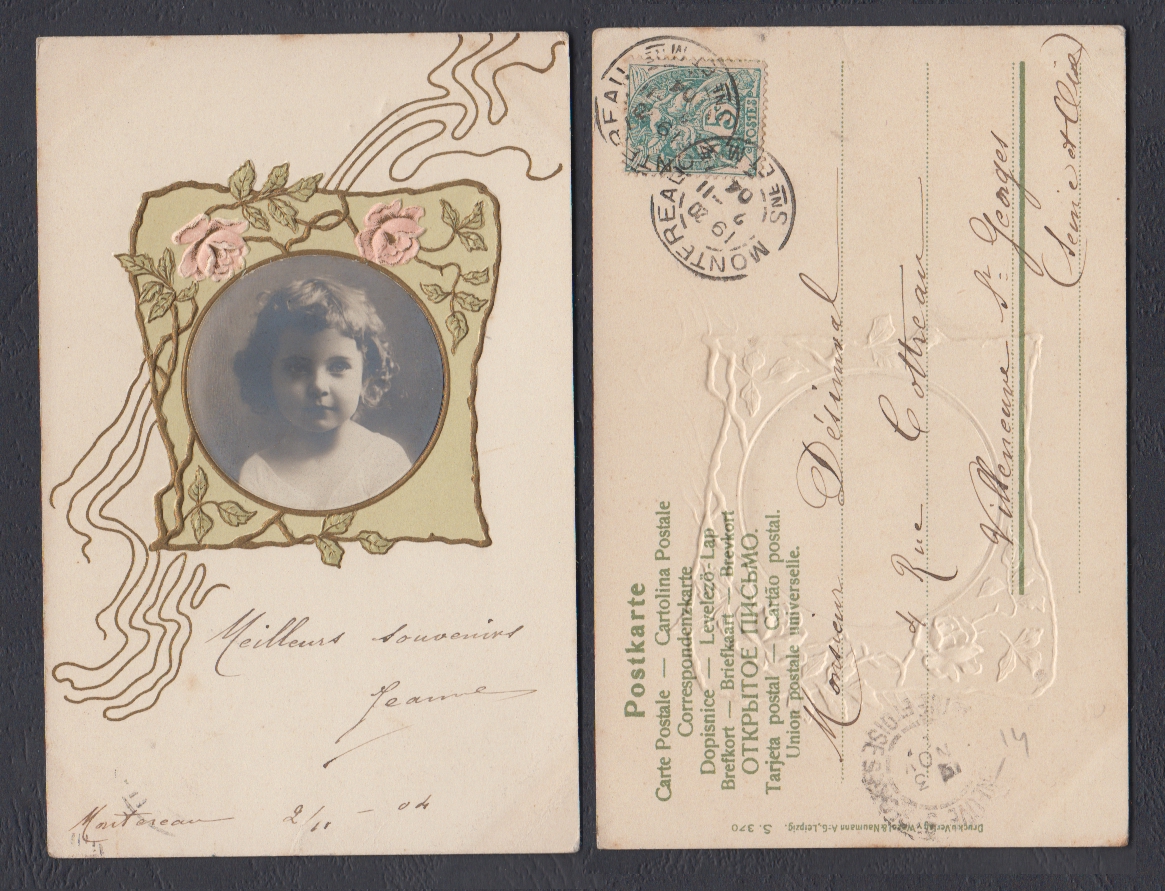 Meilleurs souvenirs
Jeanne
Montereau 2/11 - 04
Postkarte
Carte Postale — Cartolina Postale
Correspondenzkarte
Dopisnice — Levelező-Lap
Brefkort — Briefkaart — Brevkort
ОТКРЫТОЕ ПИСЬМО.
Tarjeta postal — Cartão postal.
Union postale universelle.
Monsieur Désimal
4 Rue Cottreau
Villeneuve St Georges
(Seine et Oise)
5
POSTES
MONTEREAU
SNE
19 20
2 - 11
04
S. 370
Druck u. Verlag v. Wezel & Naumann A.-G., Leipzig.